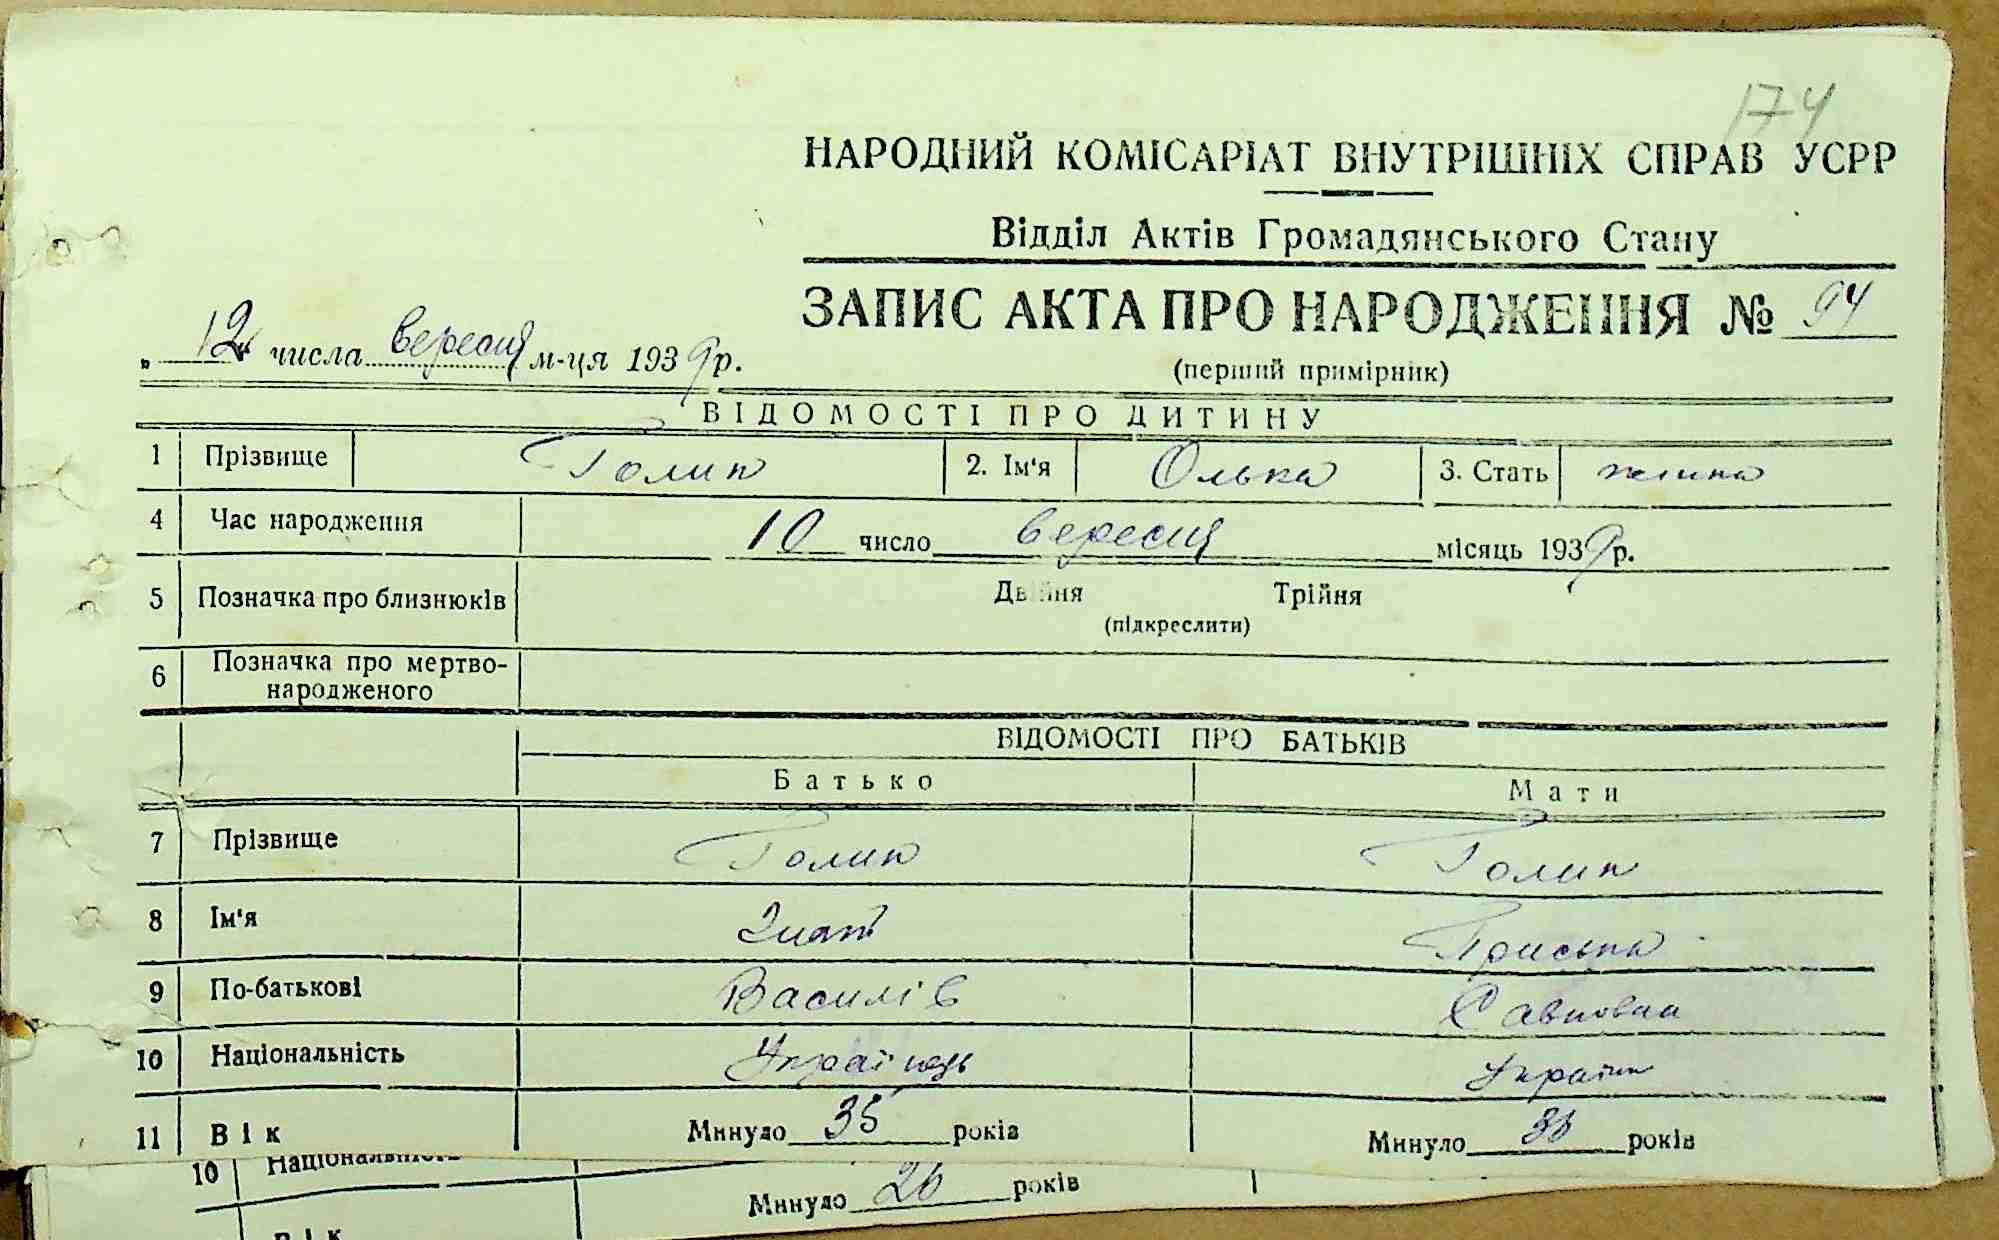 174
НАРОДНИЙ КОМІСАРІАТ ВНУТРІШНІХ СПРАВ УСРР
Відділ Актів Громадянського Стану
ЗАПИС АКТА ПРО НАРОДЖЕННЯ № 94
(перший примірник)
„ 12 числа вересня м-ця 1939 р.
ВІДОМОСТІ ПРО ДИТИНУ
1 Прізвище Голик 2. Ім'я Олька 3. Стать жіноча
4 Час народження 10 число вересня місяць 1939 р.
5 Позначка про близнюків Двійня Трійня
(підкреслити)
6 Позначка про мертво-
народженого
ВІДОМОСТІ ПРО БАТЬКІВ
Батько Мати
7 Прізвище Голик Голик
8 Ім'я Приська
9 По-батькові Василів Савковна
10 Національність Українець Україн
11 Вік Минуло 35 років Минуло років
10 Національність
Минуло 26 років
Вік